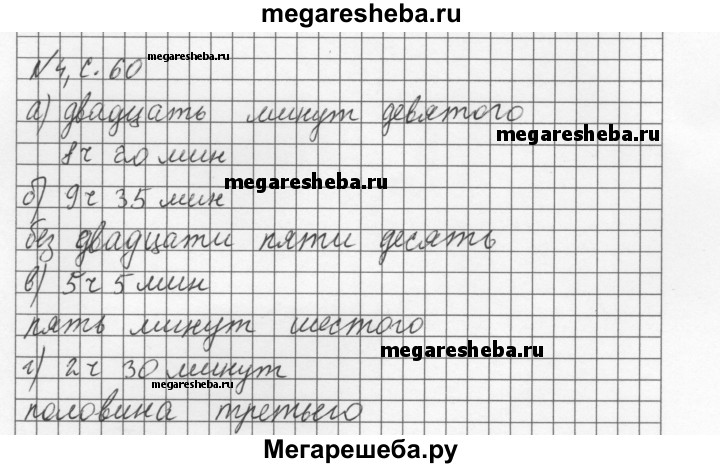 megaresheba.ru
№4, с. 60 megaresheba.ru
а) двадцать минут девятого
megaresheba.ru
8 ч 20 мин
megaresheba.ru
б) 9 ч 35 мин
без двадцати пяти десять
в) 5 ч 5 мин
пять минут шестого
megaresheba.ru
г) 2 ч 30 минут
megaresheba.ru
половина третьего
Мегарешеба.ру